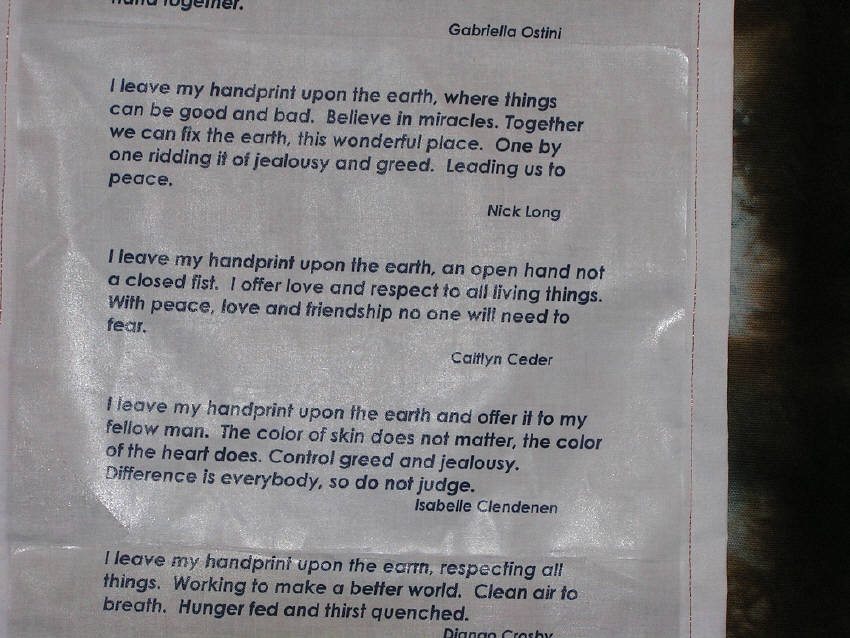 hand together.
Gabriella Ostini
I leave my handprint upon the earth, where things
can be good and bad. Believe in miracles. Together
we can fix the earth, this wonderful place. One by
one ridding it of jealousy and greed. Leading us to
peace.
Nick Long
I leave my handprint upon the earth, an open hand not
a closed fist. I offer love and respect to all living things.
With peace, love and friendship no one will need to
fear.
Caitlyn Ceder
I leave my handprint upon the earth and offer it to my
fellow man. The color of skin does not matter, the color
of the heart does. Control greed and jealousy.
Difference is everybody, so do not judge.
Isabelle Clendenen
I leave my handprint upon the earth, respecting all
things. Working to make a better world. Clean air to
breath. Hunger fed and thirst quenched.
Django Crosby